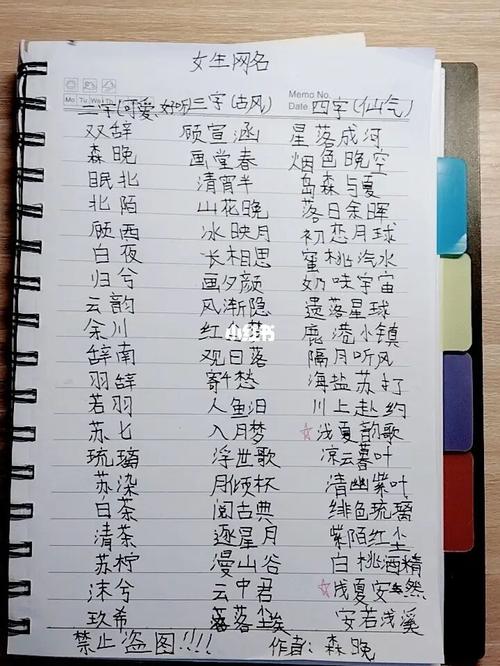 女生网名
Mo Tu We Th Memo No.
Date
二字(可爱、好听) 三字(古风) 四字(仙气)
双辞 顾宣涵 星落成河
森晚 画堂春 烟色晚空
眠北 清宵半 岛森与夏
北陌 山花晚 落日余晖
顾西 冰映月 初恋月球
白夜 长相思 蜜桃汽水
归兮 画夕颜 奶味宇宙
云韵 风渐隐 遗落星球
余川 红 鹿港小镇
小红书
辞南 观日落 隔月听风
羽辞 寄千愁 海盐苏打
若羽 人鱼泪 川上赴约
苏七 入月梦 ☆浅夏韵歌
琉璃 浮世歌 凉云暮叶
苏染 月倾杯 清幽紫叶
白茶 阅古典 绯色琉璃
清茶 逐星月 紫陌红尘
苏柠 漫山谷 白桃酒精
沫兮 云中君 ☆浅夏安然
玖希 落尘埃 安若浅溪
禁止盗图!!! 作者:森晚